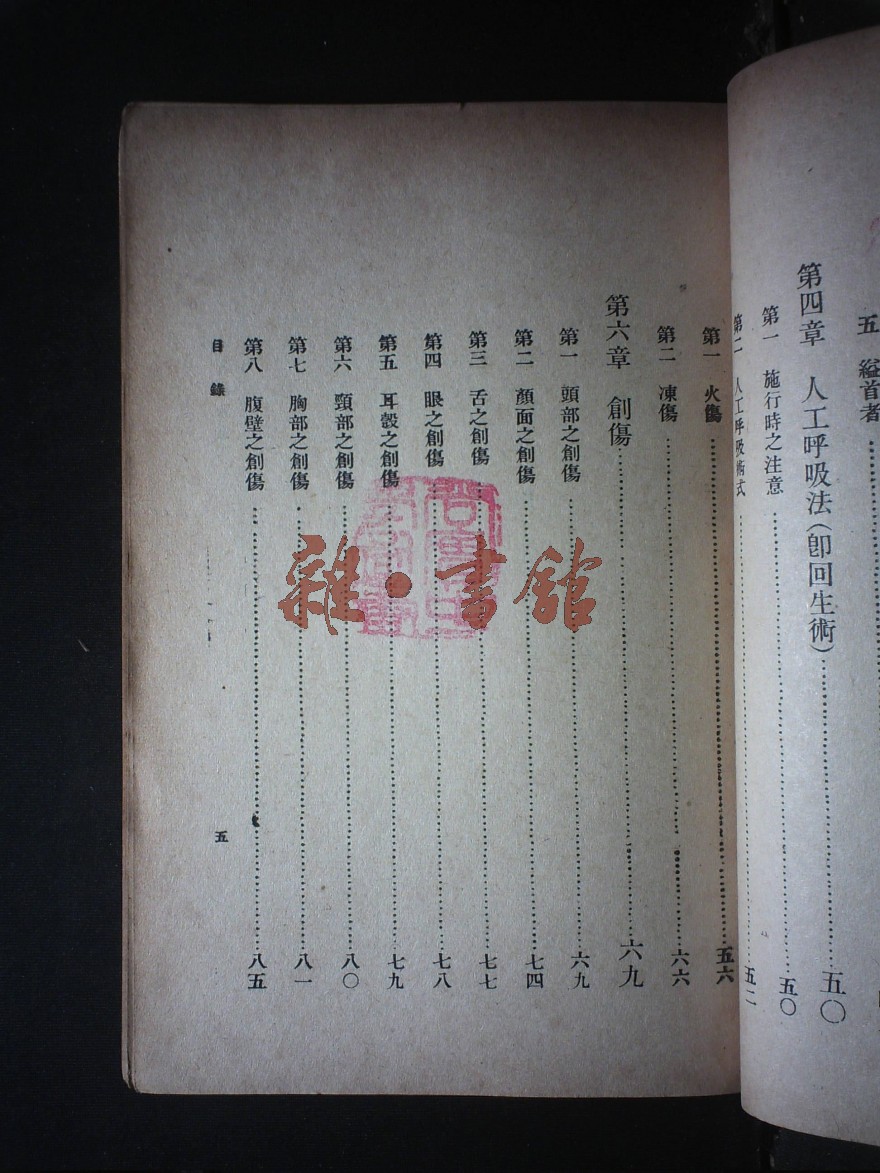 五 縊首者
第四章 人工呼吸法(卽回生術)……五〇
第一 施行時之注意……五〇
第二 人工呼吸術式……五二
第一 火傷……五六
第二 凍傷……六六
第六章 創傷……六九
第一 頭部之創傷……六九
第二 顏面之創傷……七四
第三 舌之創傷……七七
第四 眼之創傷……七八
第五 耳殼之創傷……七九
第六 頸部之創傷……八〇
第七 胸部之創傷……八一
第八 腹壁之創傷……八五
目錄 五
雜·書館